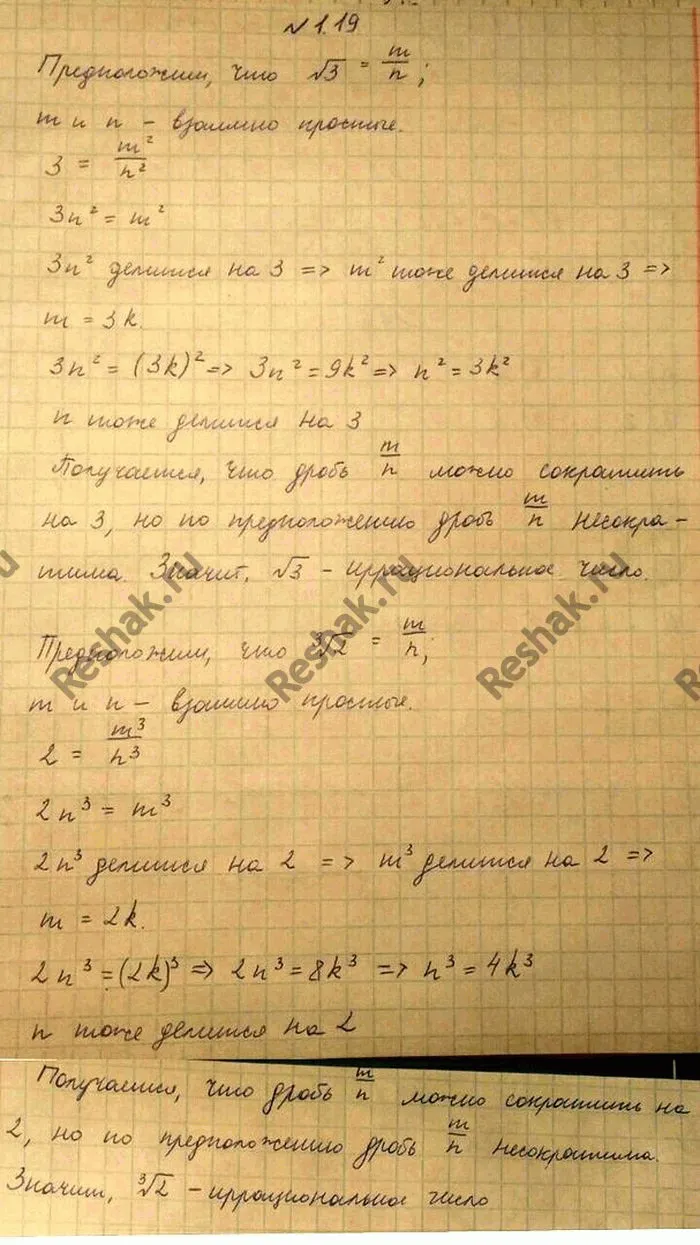 № 1.19
Предположим, что √3 = m/n;
m и n - взаимно простые.
3 = m²/n²
3n² = m²
3n² делится на 3 => m² тоже делится на 3 =>
m = 3k.
3n² = (3k)² => 3n² = 9k² => n² = 3k²
n тоже делится на 3
Получается, что дробь m/n можно сократить
на 3, но по предположению дробь m/n несокра-
тима. Значит, √3 - иррациональное число.
Reshak.ru Reshak.ru Reshak.ru
Предположим, что ∛2 = m/n;
m и n - взаимно простые.
2 = m³/n³
2n³ = m³
2n³ делится на 2 => m³ делится на 2 =>
m = 2k.
2n³ = (2k)³ => 2n³ = 8k³ => n³ = 4k³
n тоже делится на 2
Получается, что дробь m/n можно сократить на
2, но по предположению дробь m/n несократима.
Значит, ∛2 - иррациональное число